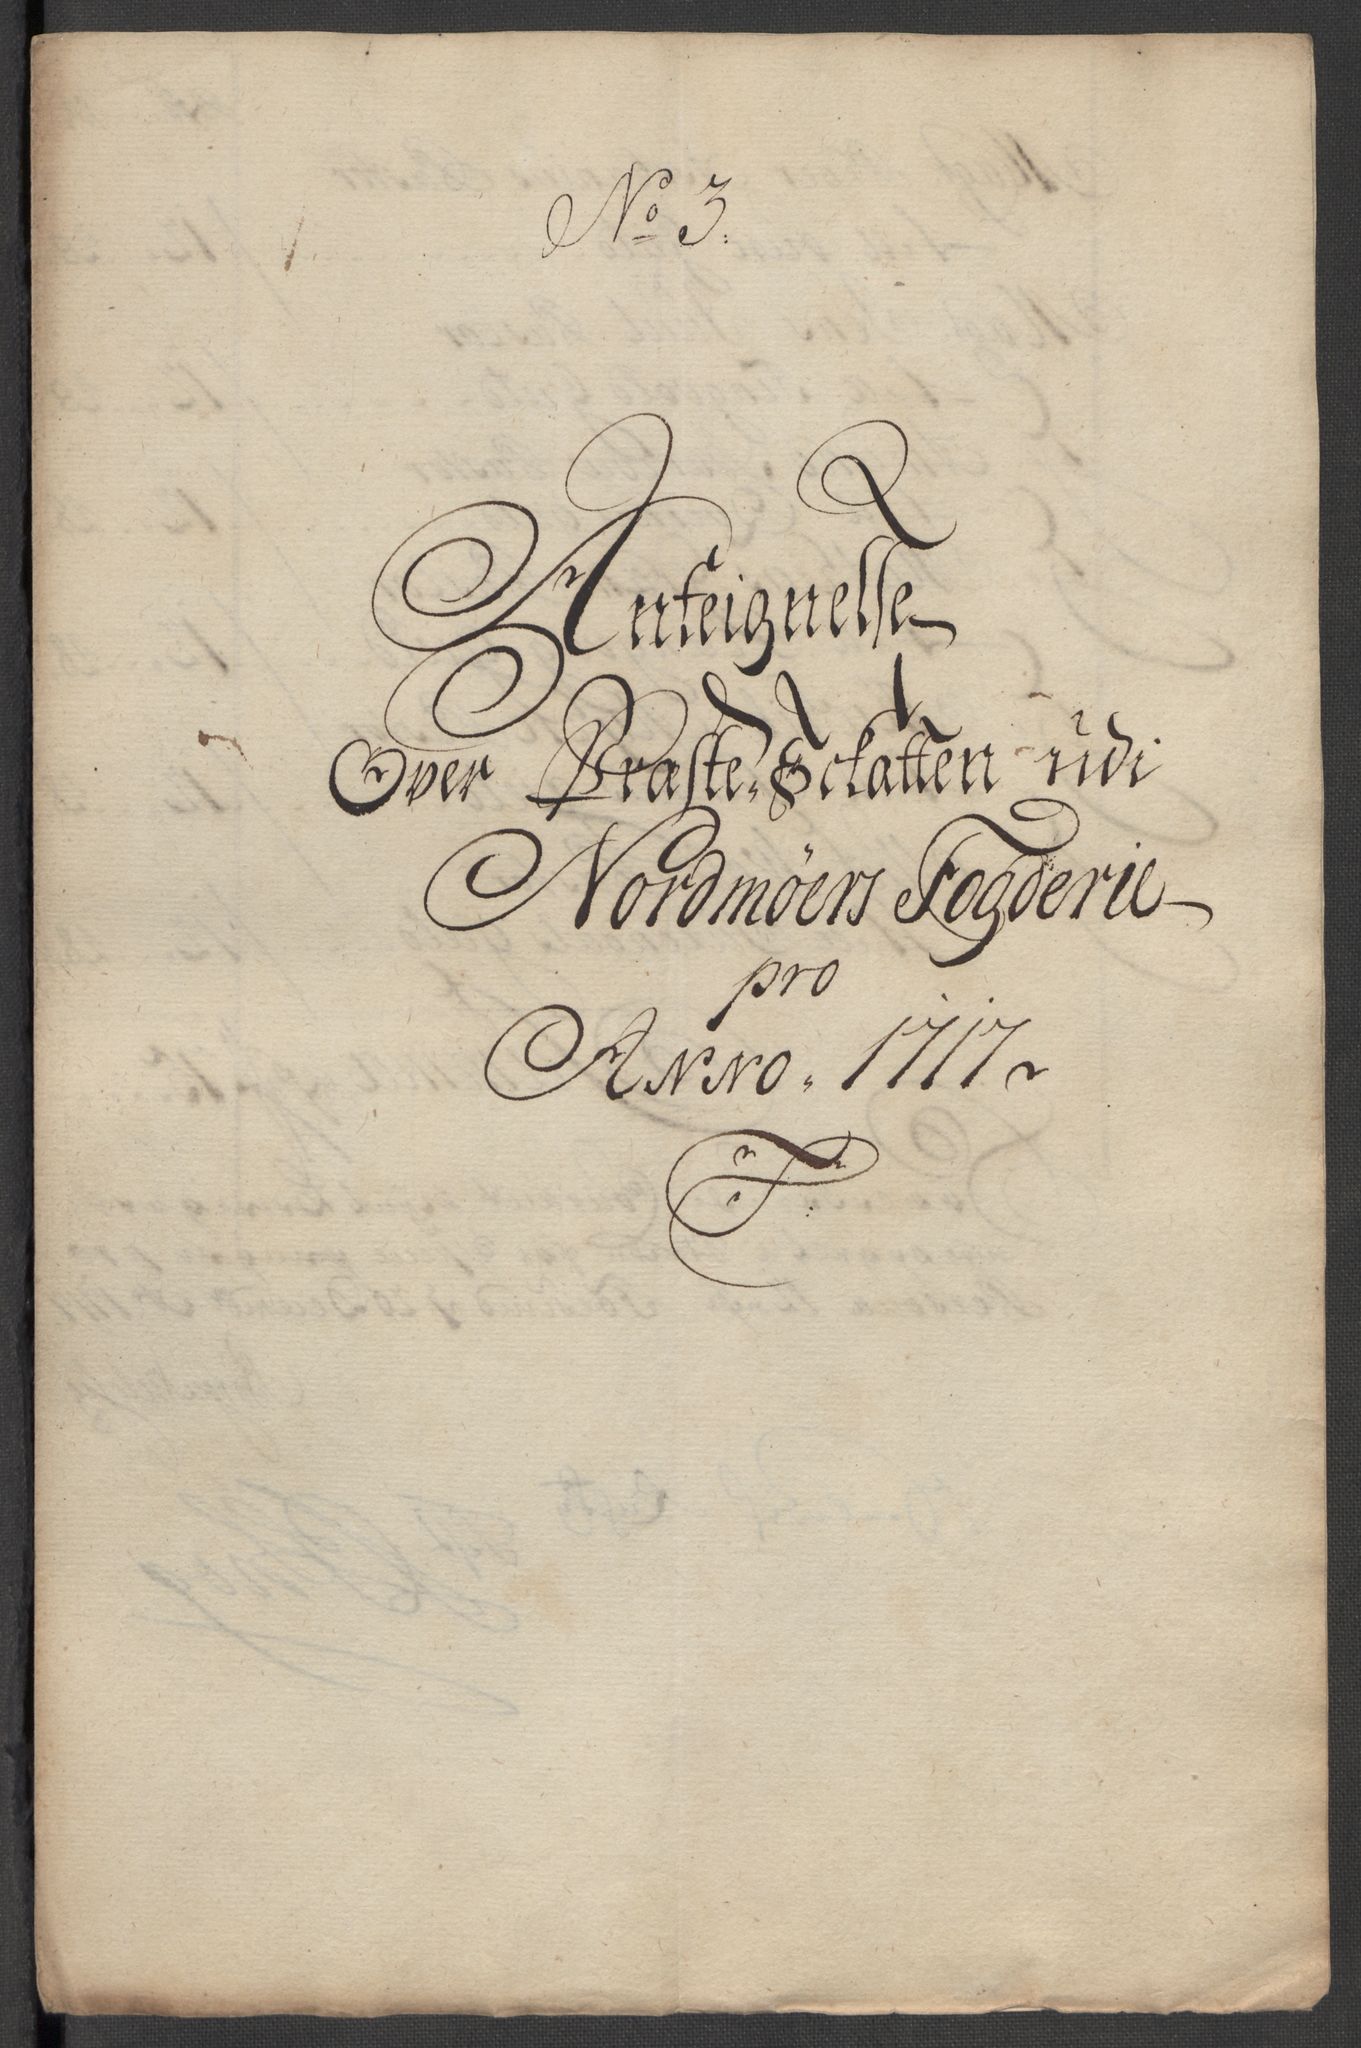 No 3.
Anteignelse
Over Præste-Schatten udi
Nordmöers Fogderie
pro
Anno. 1717